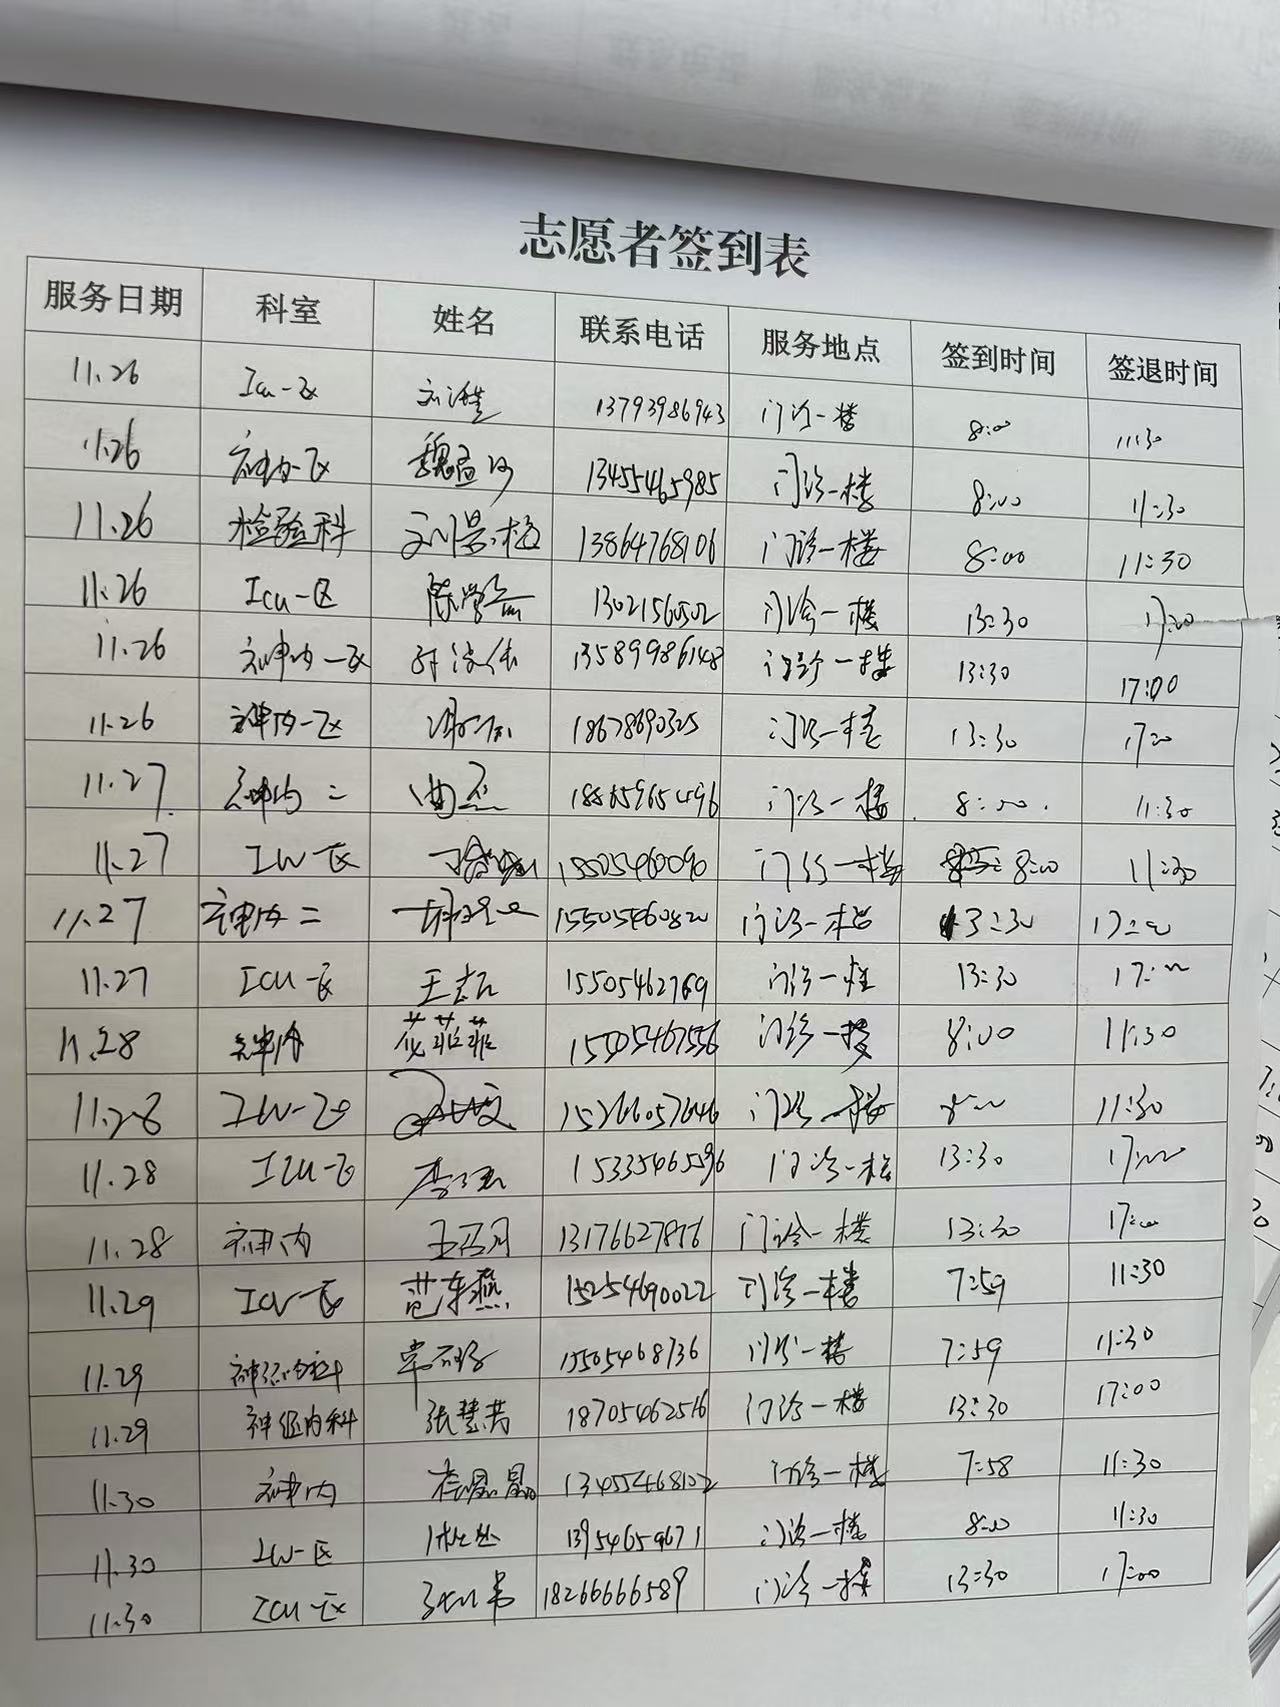 志愿者签到表
服务日期 科室 姓名 联系电话 服务地点 签到时间 签退时间
11.26 Icu一区 13793986943 门诊一楼 8:00 11:30
11.26 神内一区 13455465985 门诊一楼 8:00 11:30
11.26 检验科 刘景梅 13864768106 门诊一楼 8:00 11:30
11.26 Icu一区 13021560502 门诊一楼 13:30 17:00
11.26 神内一区 13589986148 门诊一楼 13:30 17:00
11.26 神内一区 18678690325 门诊一楼 13:30 1700
11.27 神内二 曲 18865965496 门诊一楼 8:00 11:30
11.27 ICU一区 门诊一楼 8:00 11:30
11.27 神内二 15505460820 门诊一楼 13:30 17:00
11.27 ICU一区 王 15505462769 门诊一楼 13:30 17:00
11.28 神内 花菲菲 15505467556 门诊一楼 8:00 11:30
11.28 ICU一区 15266057646 门诊一楼 8:00 11:30
11.28 ICU一区 李 15335465596 门诊一楼 13:30 17:00
11.28 神内 王 13176627876 门诊一楼 13:30 17:00
11.29 ICU一区 范东燕 15254690022 门诊一楼 7:59 11:30
11.29 神经内科 15505468736 门诊一楼 7:59 11:30
11.29 神经内科 张慧芳 18705462516 门诊一楼 13:30 17:00
11.30 神内 晶晶 13455468102 门诊一楼 7:58 11:30
11.30 ICU一区 13954659671 门诊一楼 8:00 11:30
11.30 ICU一区 18266666589 门诊一楼 13:30 17:00